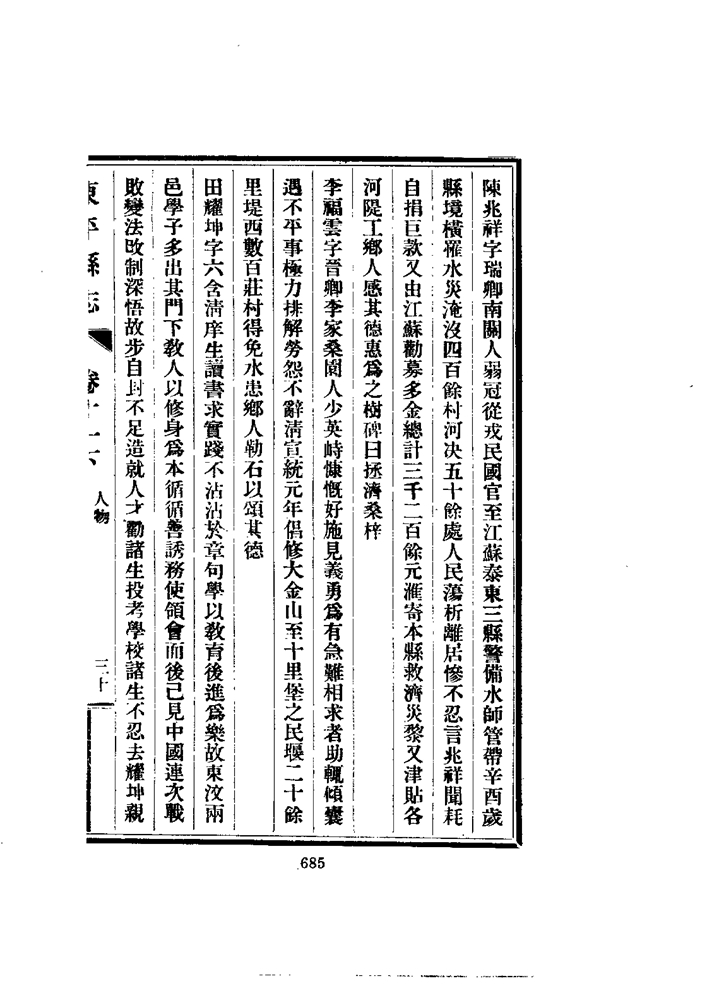 陳兆祥字瑞卿南關人弱冠從戎民國官至江蘇泰東三縣警備水師管帶辛酉歲
縣境橫罹水災淹沒四百餘村河決五十餘處人民蕩析離居慘不忍言兆祥聞耗
自捐巨款又由江蘇勸募多金總計三千二百餘元滙寄本縣救濟災黎又津貼各
河隄工鄉人感其德惠爲之樹碑曰拯濟桑梓
李福雲字晉卿李家桑園人少英峙慷慨好施見義勇爲有急難相求者助輒傾囊
遇不平事極力排解勞怨不辭淸宣統元年倡修大金山至十里堡之民堰二十餘
里堤西數百莊村得免水患鄉人勒石以頌其德
田耀坤字六含淸庠生讀書求實踐不沾沾於章句學以敎育後進爲樂故東汶兩
邑學子多出其門下敎人以修身爲本循循善誘務使領會而後已見中國連次戰
敗變法改制深悟故步自封不足造就人才勸諸生投考學校諸生不忍去耀坤親
東平縣志 卷十一 人物 三十
685